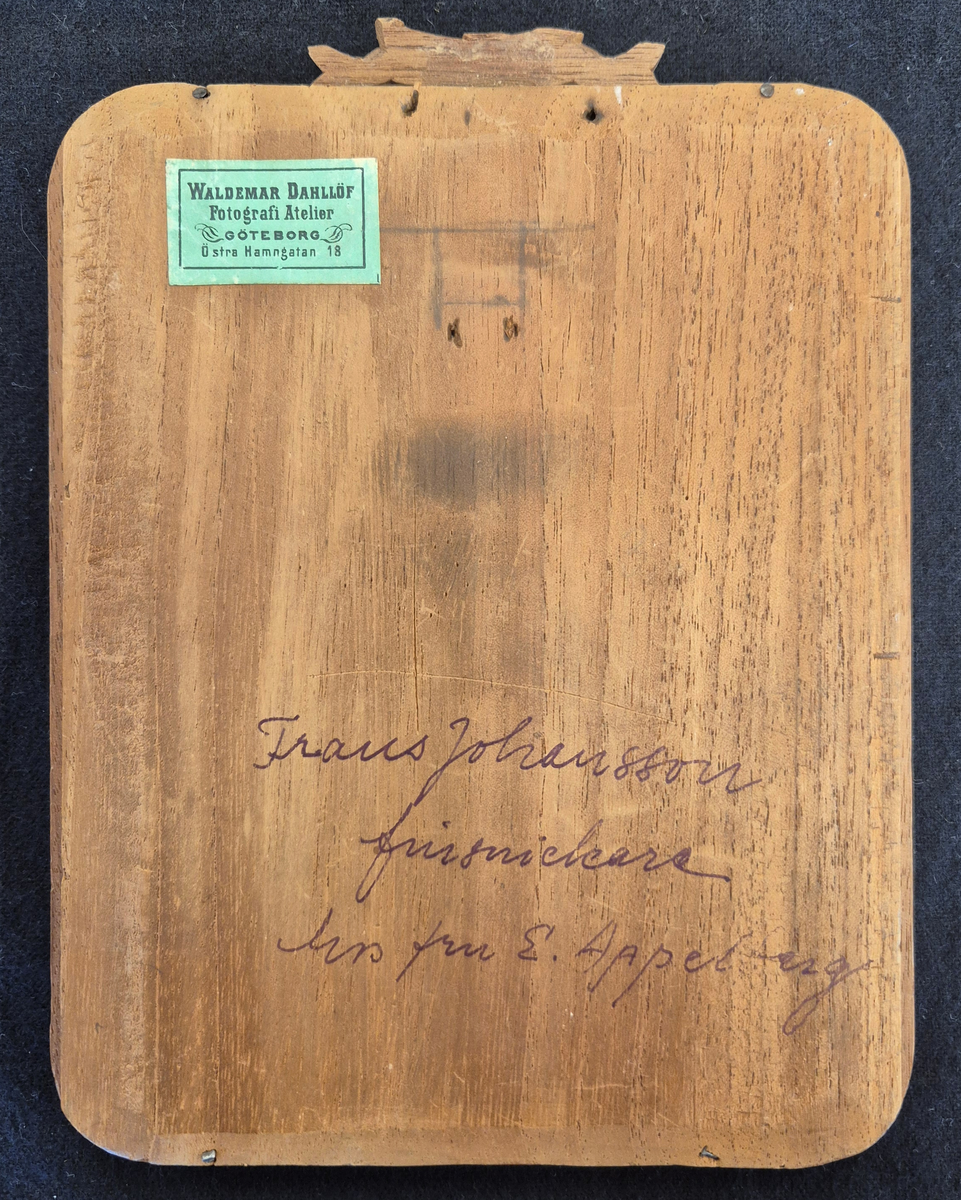 WALDEMAR DAHLLÖF
Fotografi Atelier
GÖTEBORG
Östra Hamngatan 18
Frans Johansson
finsnickare
hos fru E. Appelberg